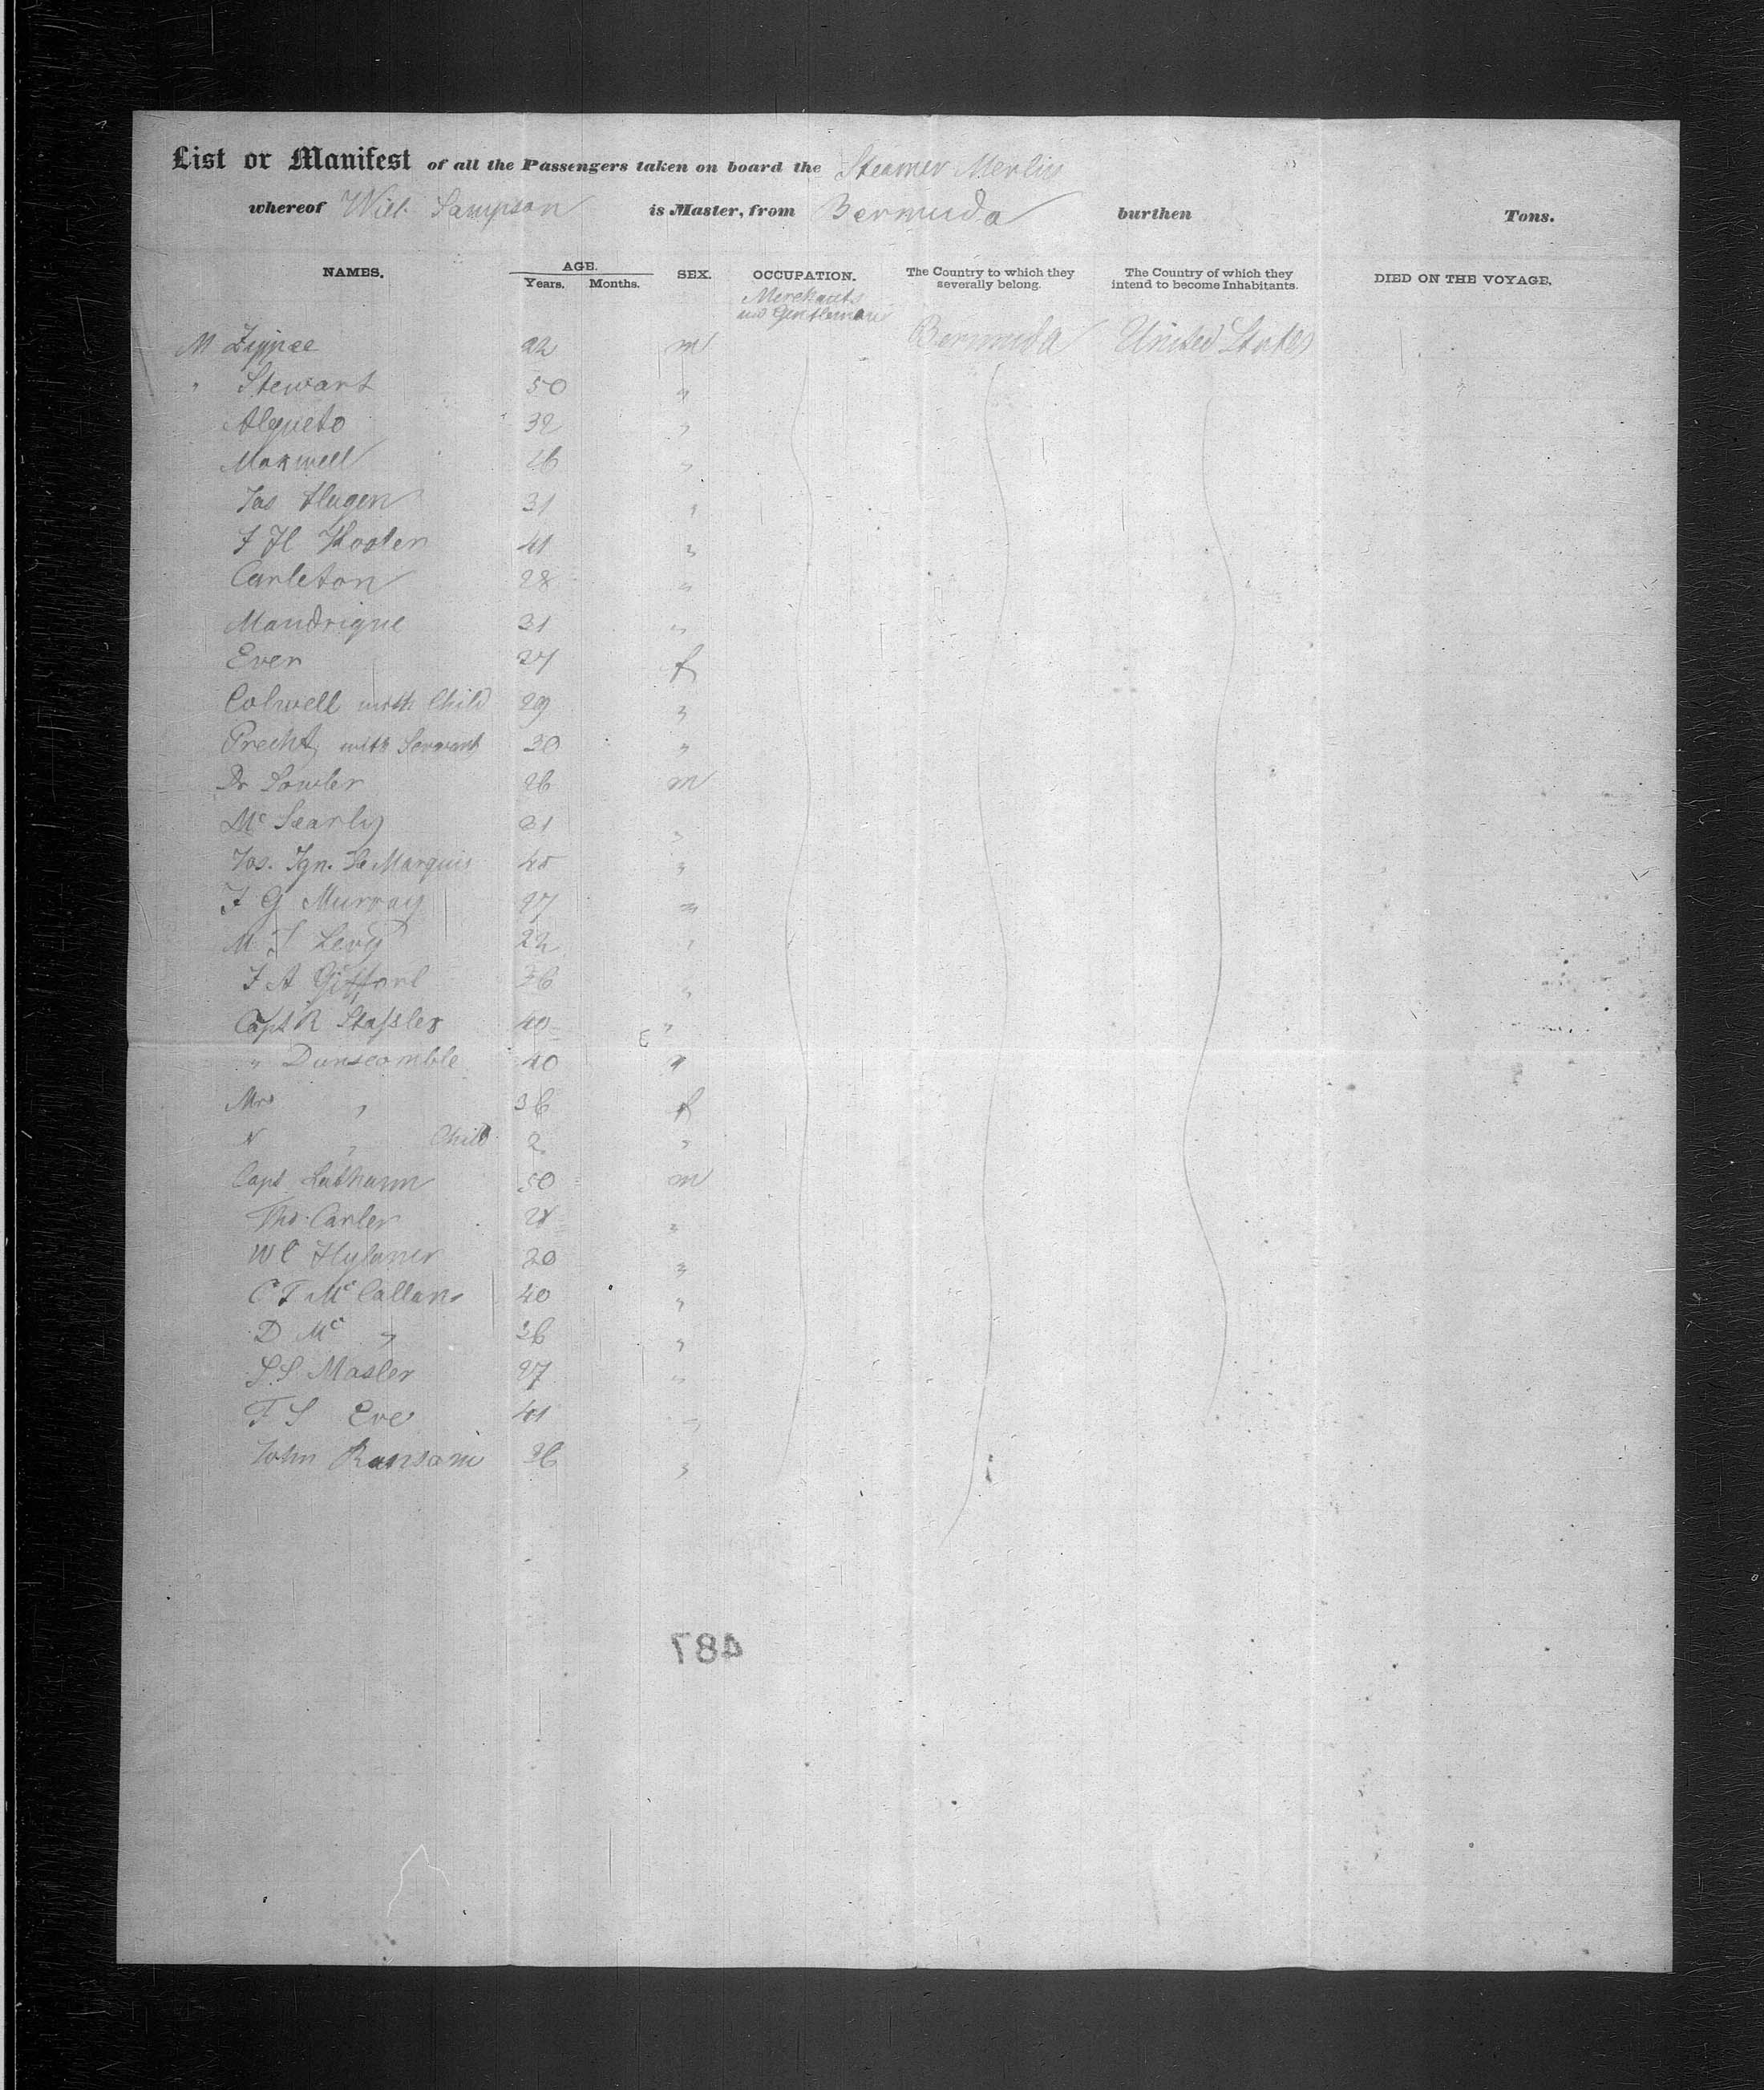 List or Manifest of all the Passengers taken on board the Steamer Merlin
whereof Will. Sampson is Master, from Bermuda burthen Tons.
NAMES. AGE. Years. Months. SEX. OCCUPATION. The Country to which they severally belong. The Country of which they intend to become Inhabitants. DIED ON THE VOYAGE.
Merchants
Gentlemen
M 22 m Bermuda United States
" Stewart 50 "
32 "
Maxwell 26 "
Jas Hugen 31 "
41 "
Carleton 28 "
Mandrique 31 "
Ever 27 f
Colwell with Child 29 "
Precht with Servant 30 "
Dr 26 m
Mc Searly 21 "
Jos. Ign. Le Marquis 45 "
F G Murray 27 "
M S Levy 22 "
F A Gifford 36 "
Capt R 40 "
" Dunscomble 40 "
Mrs " 36 f
" " Child 2 "
Capt 50 m
Tho. Carler "
W C 30 "
C T McCallan 40 "
D Mc " 36 "
S. S Masler 27 "
F S Eve 41 "
John Ransom 36 "
487